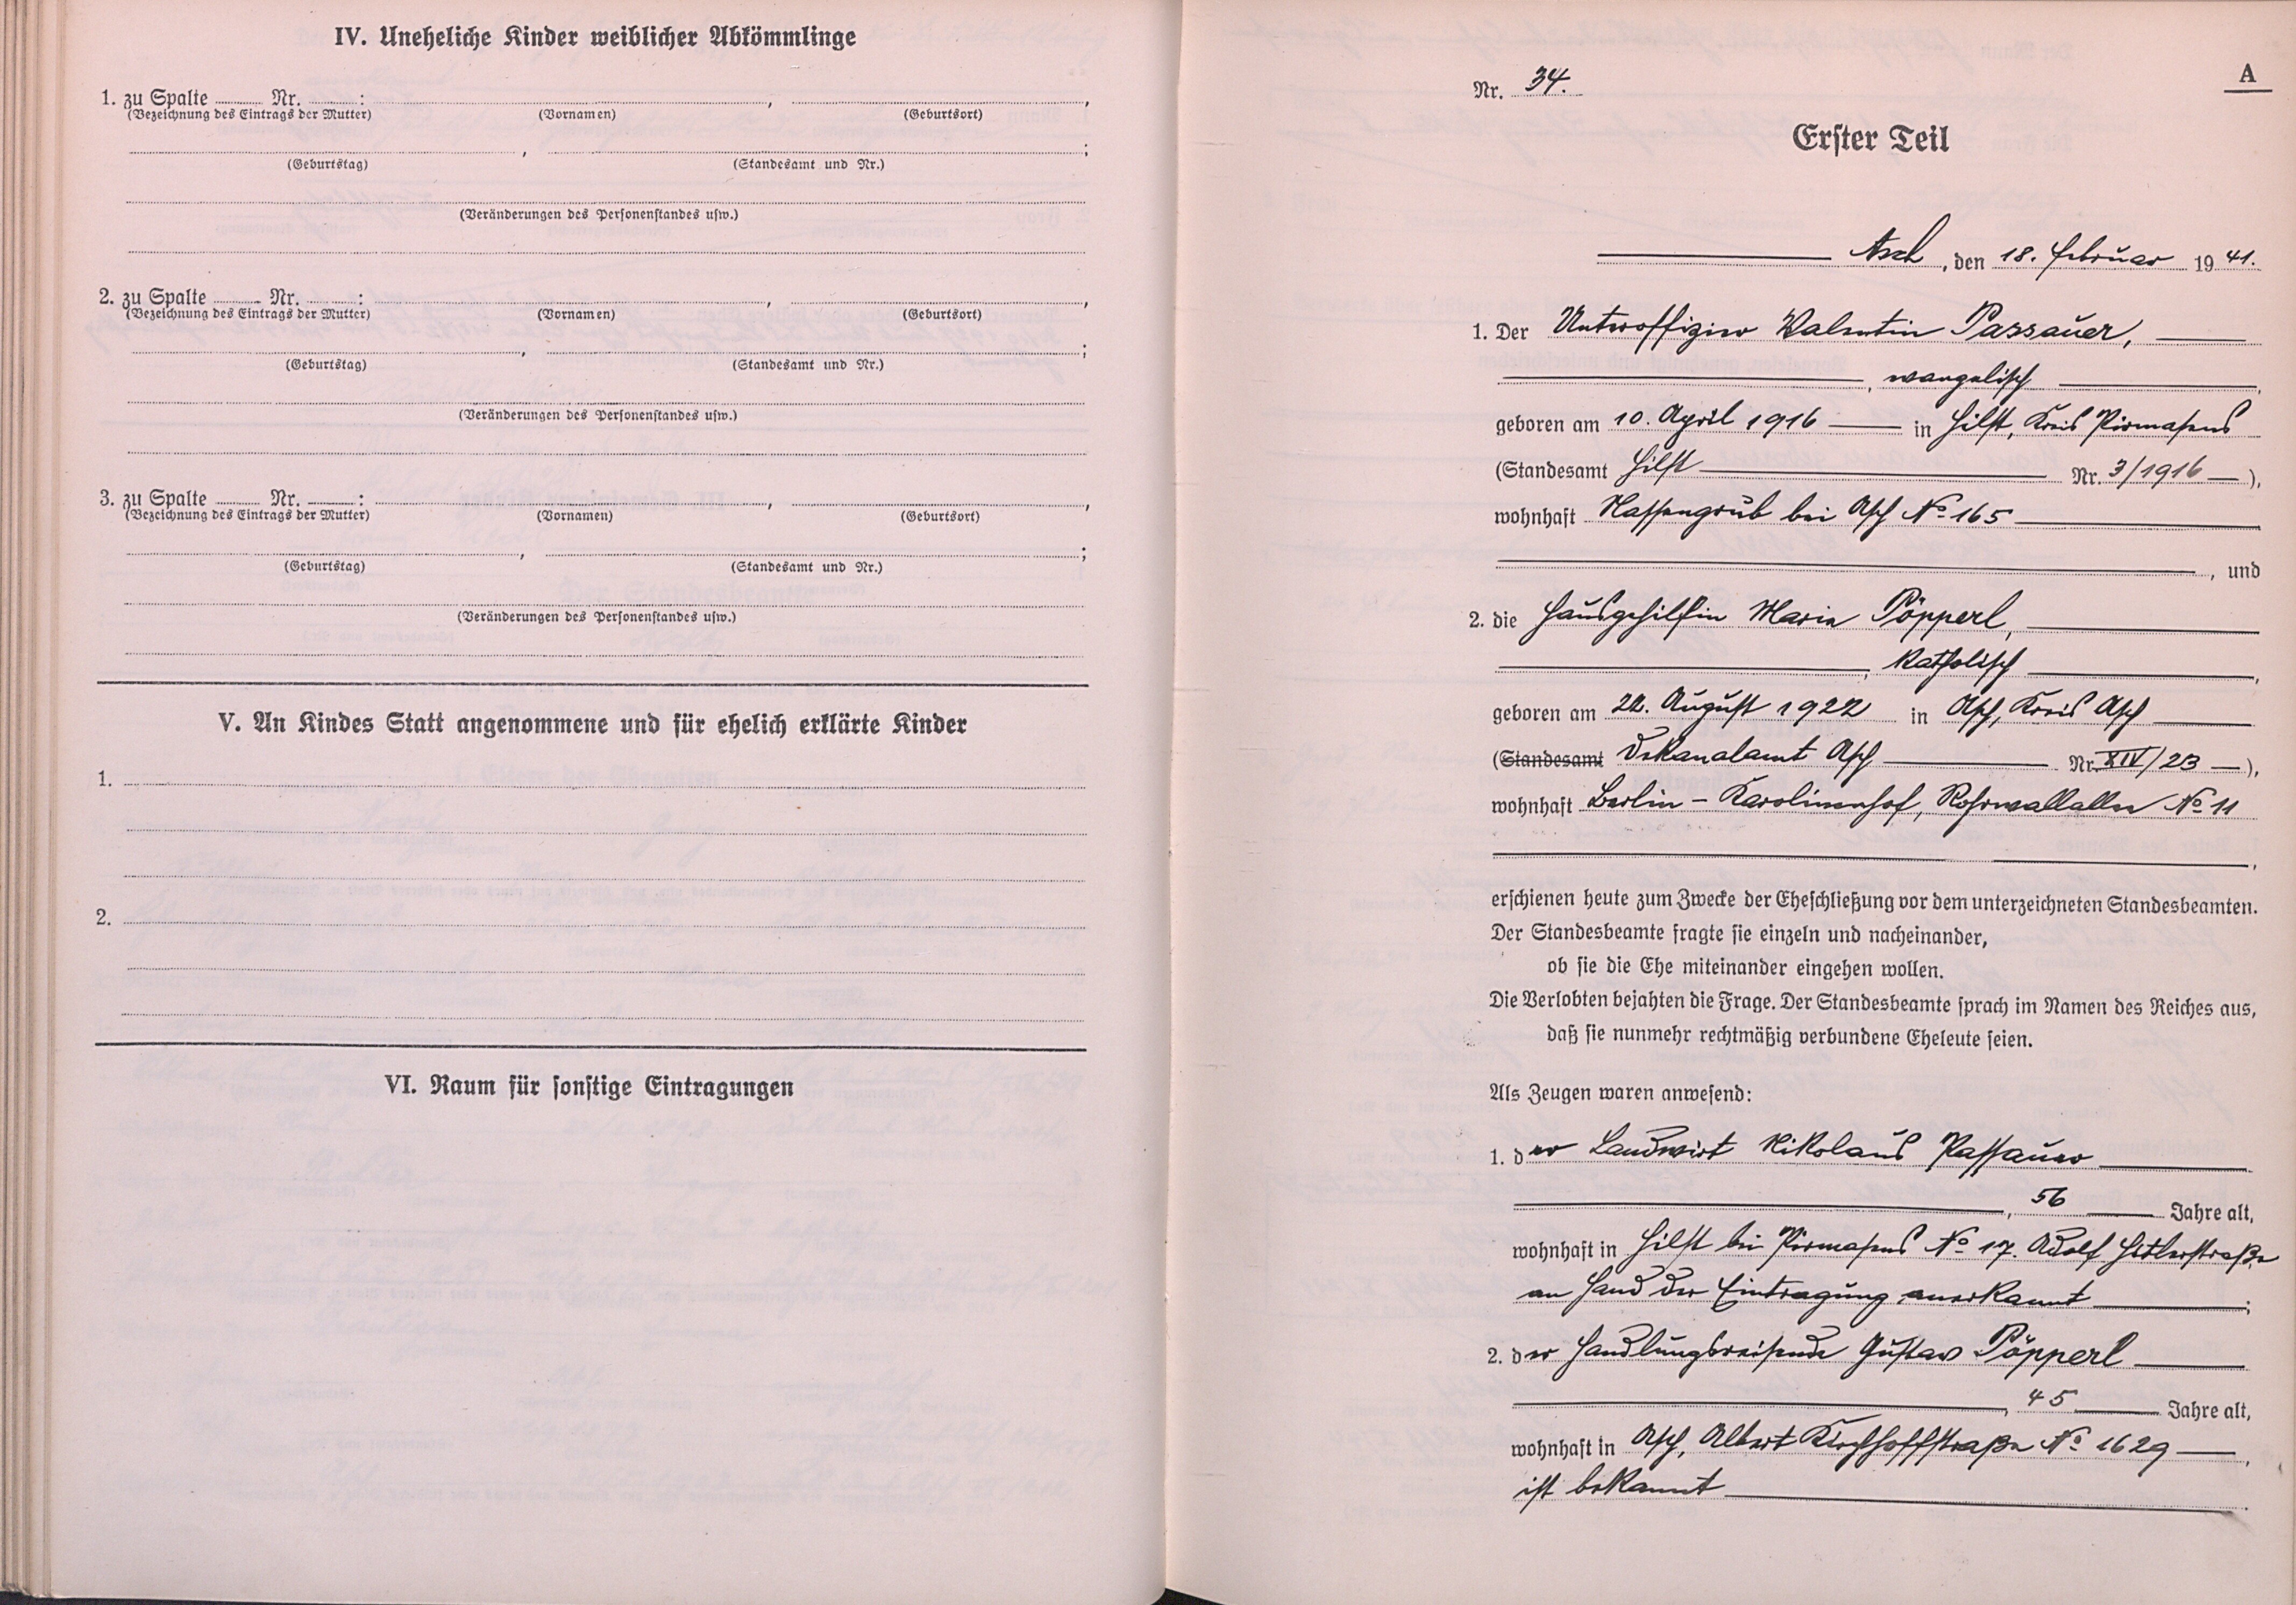 IV. Uneheliche Kinder weiblicher Abkömmlinge
1. zu Spalte ........ Nr. ........ : ........ , ........ ,
(Bezeichnung des Eintrags der Mutter) (Vornamen) (Geburtsort)
........ , ........ ;
(Geburtstag) (Standesamt und Nr.)
(Veränderungen des Personenstandes usw.)
2. zu Spalte ........ Nr. ........ : ........ , ........ ,
(Bezeichnung des Eintrags der Mutter) (Vornamen) (Geburtsort)
........ , ........ ;
(Geburtstag) (Standesamt und Nr.)
(Veränderungen des Personenstandes usw.)
3. zu Spalte ........ Nr. ........ : ........ , ........ ,
(Bezeichnung des Eintrags der Mutter) (Vornamen) (Geburtsort)
........ , ........ ;
(Geburtstag) (Standesamt und Nr.)
(Veränderungen des Personenstandes usw.)
V. An Kindes Statt angenommene und für ehelich erklärte Kinder
1.
2.
VI. Raum für sonstige Eintragungen
A
Nr. 34.
Erster Teil
Asch, den 18. Februar 1941.
1. Der Unteroffizier Valentin Passauer,
, evangelisch ,
geboren am 10. April 1916 in Hilst, Kreis Pirmasens
(Standesamt Hilst Nr. 3/1916 ),
wohnhaft Nassengrub bei Asch No 165
, und
2. die Hausgehilfin Maria Pöpperl,
, katholisch ,
geboren am 22. August 1922 in Asch, Kreis Asch
(Standesamt Dekanalamt Asch Nr. XIV/23 ),
wohnhaft Berlin - Karolinenhof, Rohrwallallee No 11
,
erschienen heute zum Zwecke der Eheschließung vor dem unterzeichneten Standesbeamten.
Der Standesbeamte fragte sie einzeln und nacheinander,
ob sie die Ehe miteinander eingehen wollen.
Die Verlobten bejahten die Frage. Der Standesbeamte sprach im Namen des Reiches aus,
daß sie nunmehr rechtmäßig verbundene Eheleute seien.
Als Zeugen waren anwesend:
1. der Landwirt Nikolaus Passauer
, 56 Jahre alt,
wohnhaft in Hilst bei Pirmasens No 17. Adolf Hitlerstraße
an Hand der Eintragung anerkannt ;
2. der Handlungsreisende Gustav Pöpperl
, 45 Jahre alt,
wohnhaft in Asch, Albert Kirchhoffstraße No 1629 ,
ist bekannt